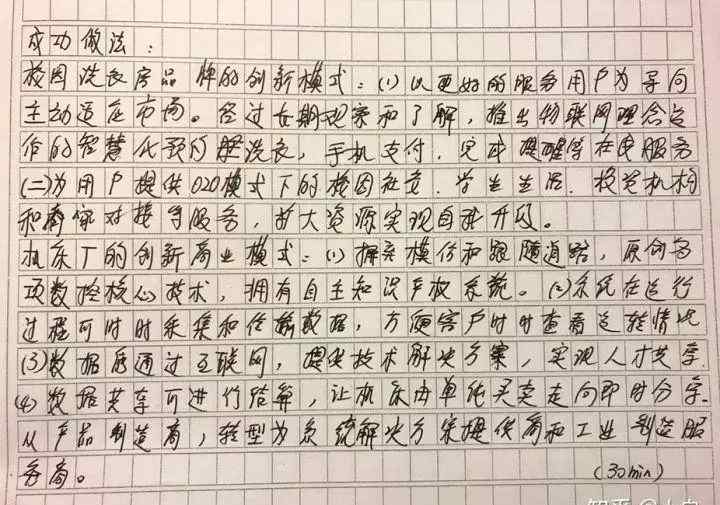 成功做法：
校园洗衣房品牌的创新模式：(1)以更好的服务用户为导向
主动适应市场。经过长期观察和了解，推出物联网理念运
作的智慧化预约 洗衣，手机支付，完成提醒等在内服务
(二)为用户提供O2O模式下的校园社交、学生生活、投资机构
和商家对接等服务，扩大资源实现自我升级。
机床厂的创新商业模式：(1)摒弃模仿和跟随道路，原创多
项数控核心技术，拥有自主知识产权系统。(2)系统在运行
过程可时时采集和传输数据，方便客户时时查看运转情况
(3)数据库通过互联网，提供技术解决方案，实现人才共享
(4)数据共享可进行结算，让机床由单纯买卖走向即时分享
从产品制造商，转型为系统解决方案提供商和工业制造服
务商。 (30min)
知乎